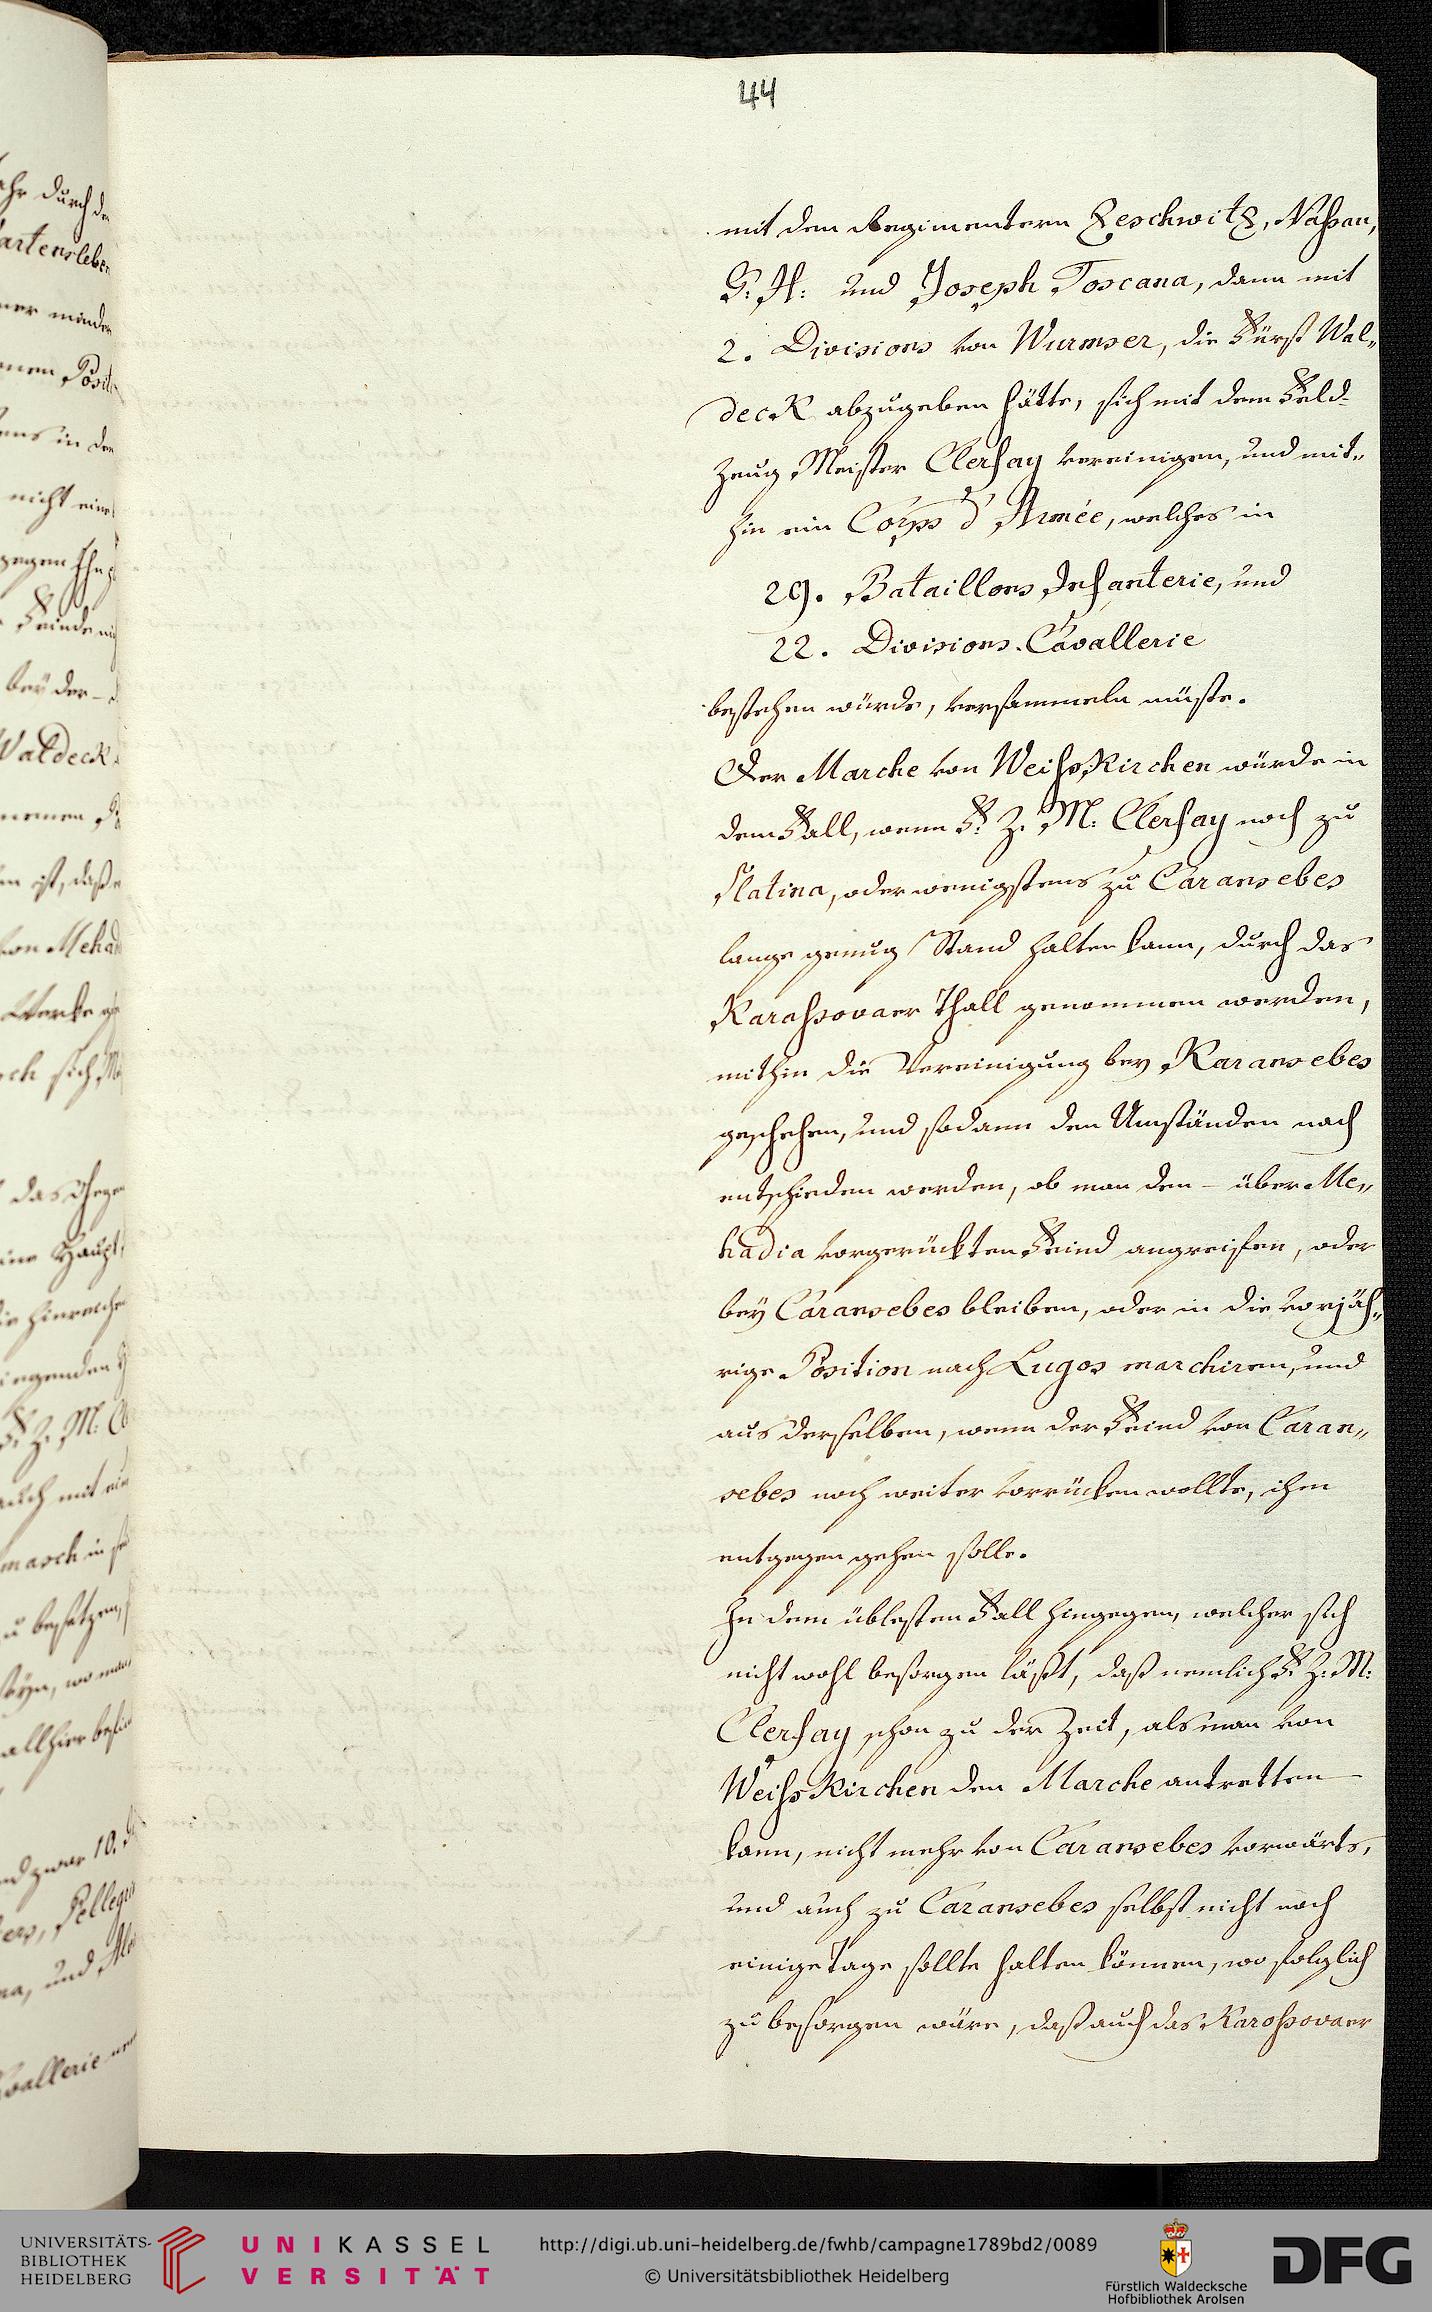 44
mit den Regimentern Zeschwitz, Nassau,
G: H: und Joseph Toscana, dann mit
2. Divisions von Wurmser, die Fürst Wal„
deck abzugeben hätte, sich mit dem Feld-
zeug Meister Clerfay vereinigen, und mit„
hin ein Corps d'Armée, welches in
29. Bataillons Infanterie, und
22. Divisions Cavallerie
bestehen würde, versammeln müste.
Der Marche von Weisskirchen würde in
dem Fall, wenn F: Z: M: Clerfay noch zu
Slatina, oder wenigstens zu Caransebes
lange genug Stand halten kann, durch das
Karassovaer Thall genommen werden,
mithin die Vereinigung bey Karansebes
geschehen, und sodann den Umständen nach
entschieden werden, ob man den - über Me„
hadia vorgerückten Feind angreifen, oder
bey Caransebes bleiben, oder in die vorjäh„
rige Position nach Lugos marchiren, und
aus derselben, wenn der Feind von Caran„
sebes noch weiter vorrücken wollte, ihm
entgegen gehen solle.
In dem üblesten Fall hingegen, welcher sich
nicht wohl besorgen läßt, daß nemlich F: Z: M:
Clerfay schon zu der Zeit, als man von
Weisskirchen den Marche antretten
kann, nicht mehr von Caransebes vorwärts,
und auch zu Caransebes selbst nicht noch
einige Tage sollte halten können, wo folglich
zu besorgen wäre, daß auch das Karassovaer
UNIVERSITÄTS-
BIBLIOTHEK
HEIDELBERG
UNIKASSEL
VERSITÄT
http://digi.ub.uni-heidelberg.de/fwhb/campagne1789bd2/0089
© Universitätsbibliothek Heidelberg
Fürstlich Waldecksche
Hofbibliothek Arolsen
DFG